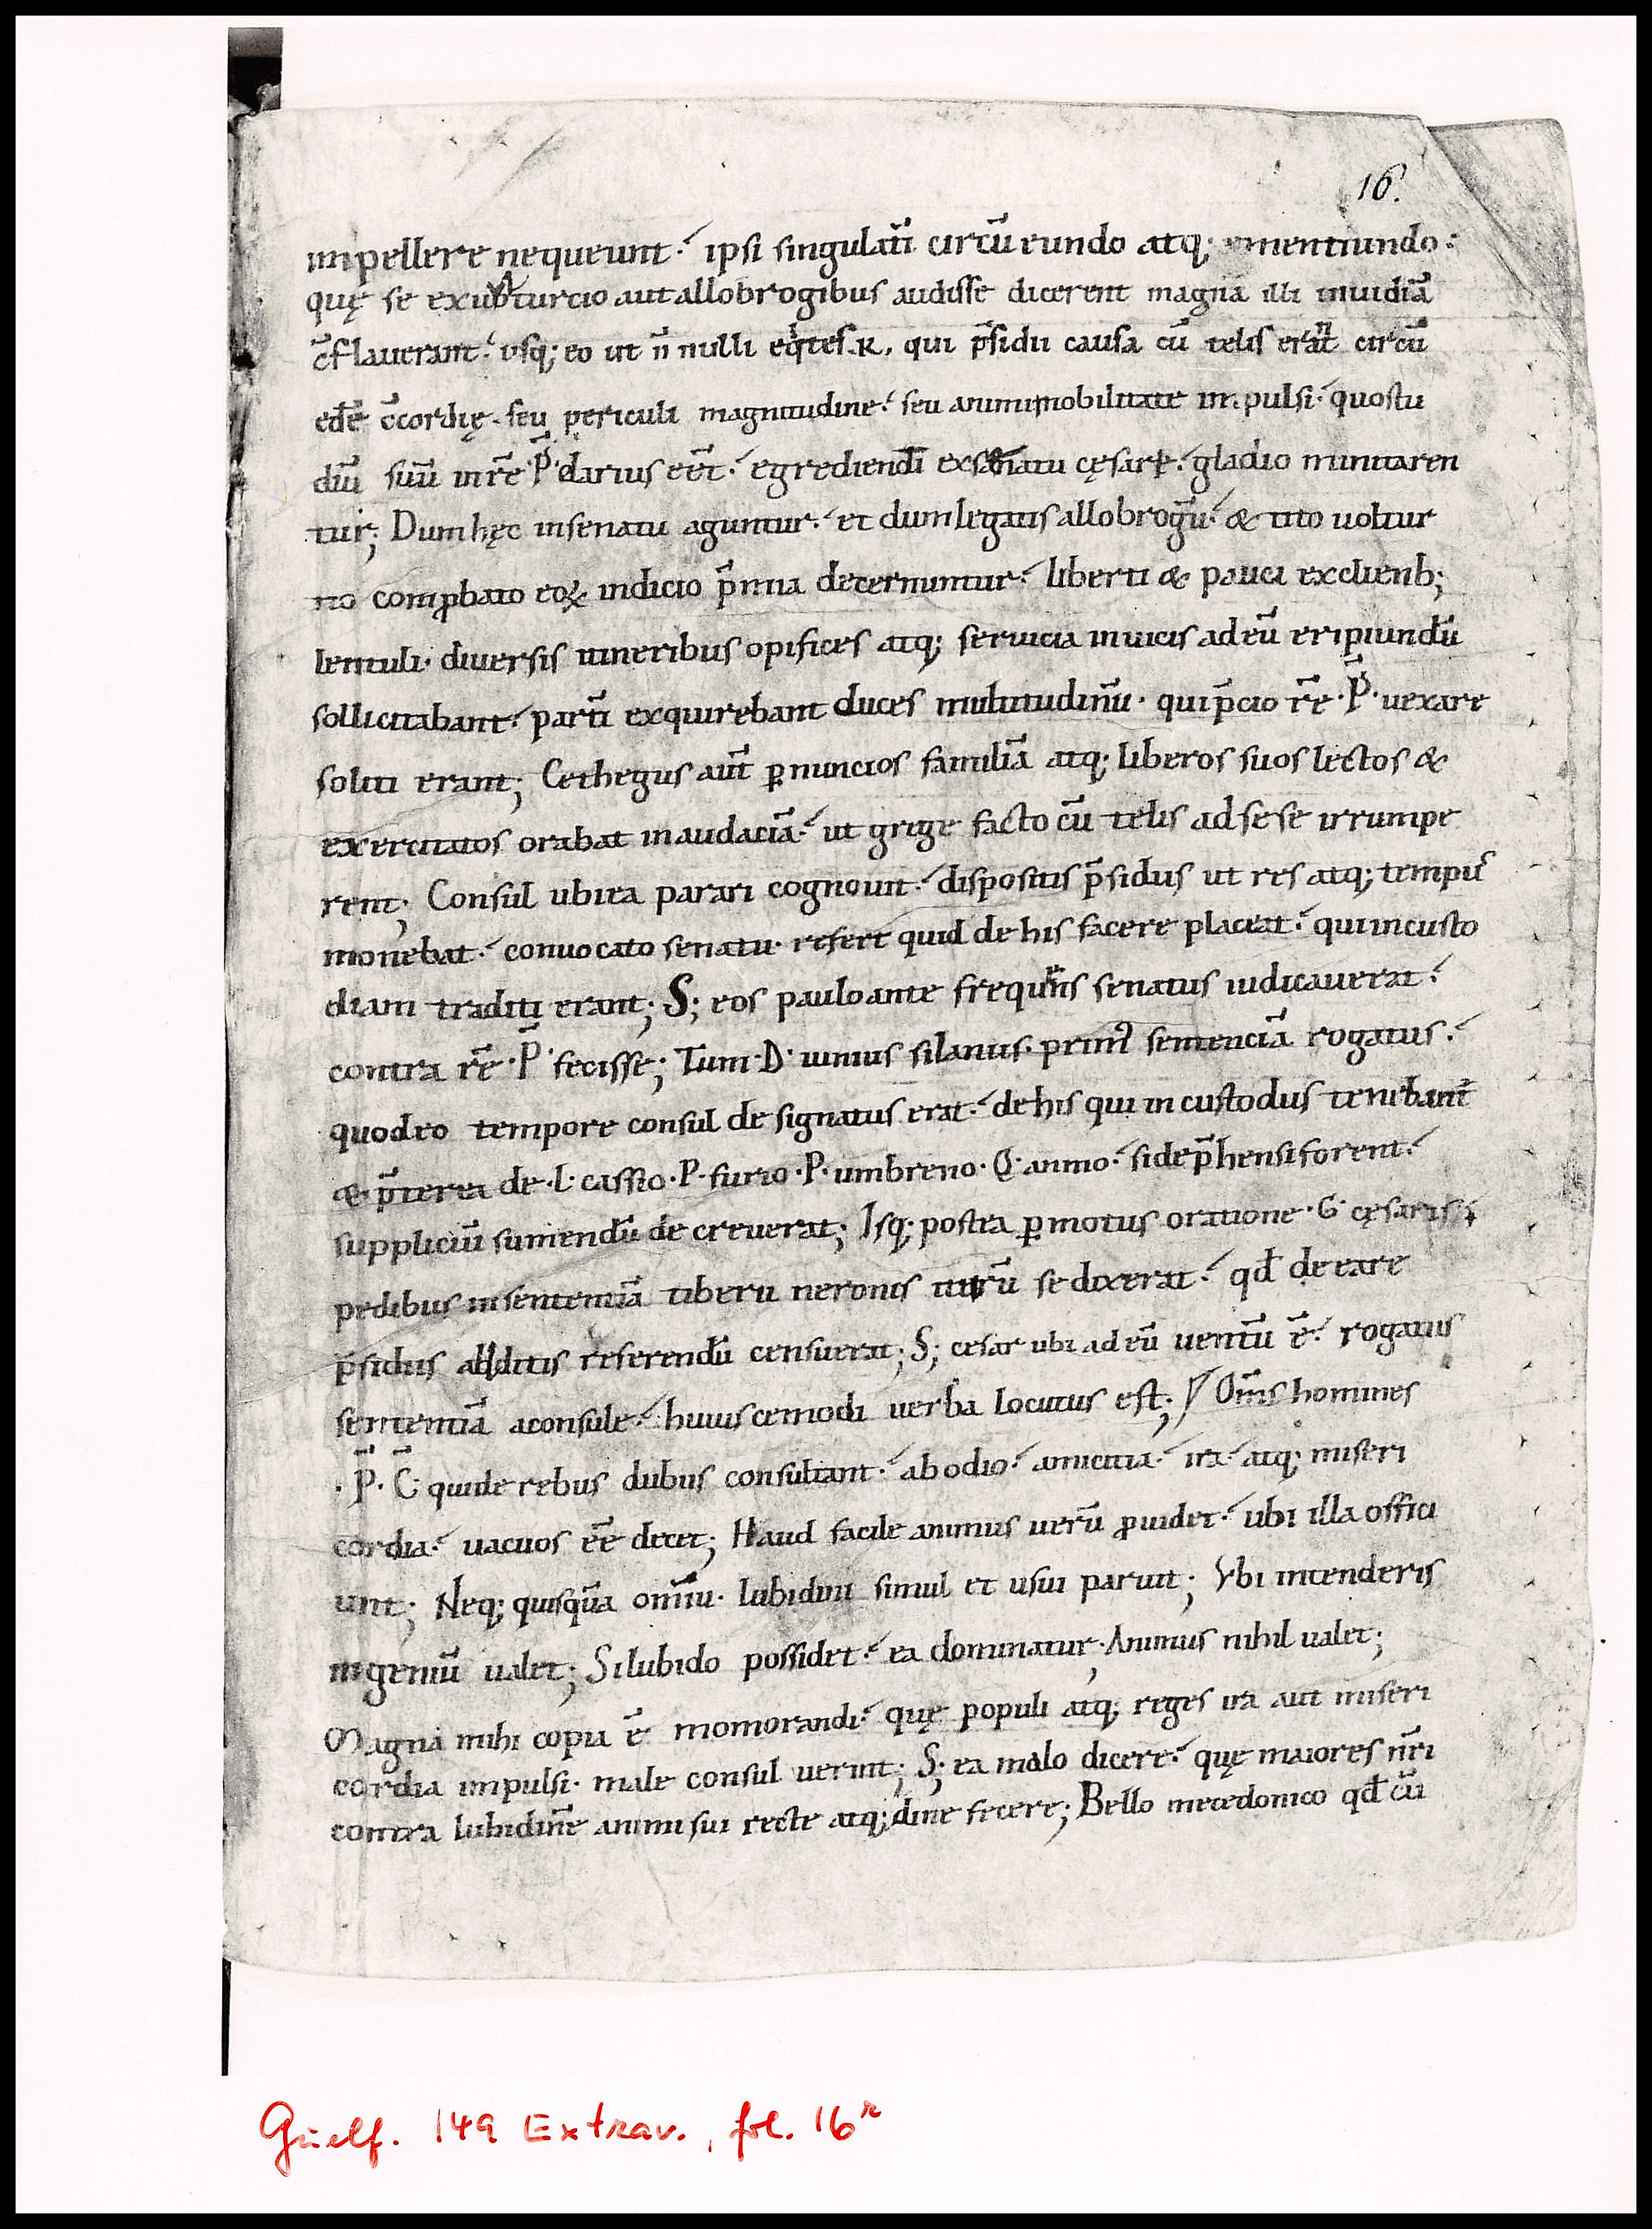 16.
impellere nequeunt. ipsi singulatī circū eundo atq; ementiundo.
quę se exuolturcio autallobrogibus audisse dicerent magnā illi inuidiā
c̄flauerant. vsq; eo ut n̄ nulli eq̇tes .R. qui p̄sidii causa cū telis erant circū
ędē c̄cordię. seu periculi magnitudine. seu animimobilitate impulsi. quostu
diū suū inrē .P̄. clarius eēt. egredienti exsenatu cęsare. gladio minitaren
tur; Dum hęc insenatu aguntur. et dumlegatis allobrogū. & tito uoltur
tio comprobato eoꝝ indicio p̄mia decernuntur. liberti & pauci exclientib;
lentuli. diuersis itineribus opifices atq; seruicia inuicis ad eū eripiundū
sollicitabant. partī exquirebant duces multitudinū. qui p̄cio rē .P̄. uexare
soliti erant; Cethegus aut̄ ꝑ nuncios familiā atq; liberos suos lectos &
exercitatos orabat inaudaciā. ut grege facto cū telis ad sese irrumpe
rent; Consul ubiea parari cognouit. dispositis p̄sidiis ut res atq; tempus
monebat. conuocato senatu. refert quid de his facere placeat. qui incusto
diam traditi erant; S; eos pauloante frequens senatus iudicauerat.
contra rē .P̄. fecisse; Tum .D. iunius silanus. primꝰ sentenciā rogatus.
quodeo tempore consul designatus erat. de his qui in custodiis tenebant̄
& p̄terea de .L. cassio .P. furio .P. umbreno. Q. annio. si dep̄hensi forent.
suppliciū sumendū decreuerat; Isq; postea ꝑmotus oratione .G. cęsaris
pedibus insententiā tiberii neronis iturū se dixerat. qd̄ de eare
p̄sidiis additis referendū censuerat; S; cesar ubi ad eū uentū ē. rogatus
sententiā aconsule. huiuscemodi uerba locutus est; Om̄s homines
.P̄. C̄. quide rebus dubiis consultant. ab odio. amicitia. ira. atq; miseri
cordia. uacuos eē decet; Haud facile animus uerū ꝓuidet. ubi illa offici
unt; Neq; quisquā omniū. lubidini simul et usui paruit; Ybi intenderis
ingeniū ualet; Silubido possidet. ea dominatur; Animus nihil ualet;
Magna mihi copia ē momorandi. quę populi atq; reges ira aut miseri
cordia impulsi. male consuluerint; S; ea malo dicere. quę maiores nr̄i
contra lubidinē animi sui recte atq; dine fecere; Bello mecedonico qd̄ cū
Guelf. 149 Extrav., fol. 16r